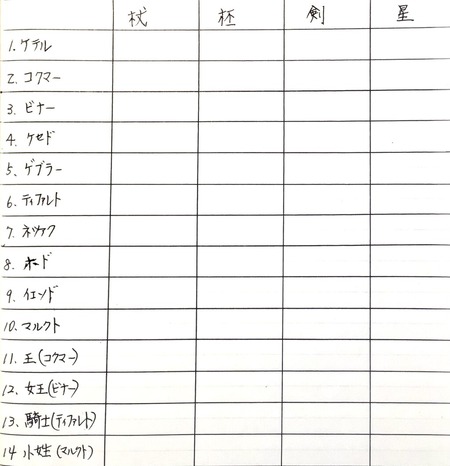 杖 杯 剣 星
1. ケテル
2. コクマー
3. ビナー
4. ケセド
5、ゲブラー
6. ティファルト
7. ネツァク
8. ホード
9. イエソド
10. マルクト
11. 王(コクマー)
12. 女王(ビナー)
13. 騎士(ティファルト)
14 小姓(マルクト)